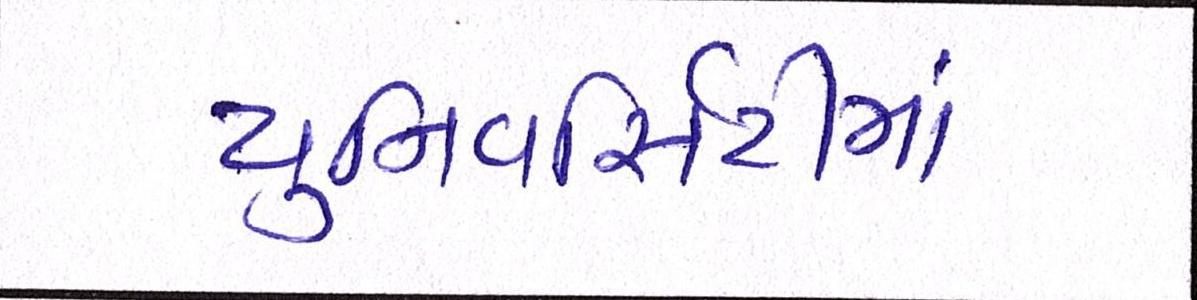 યુનિવર્સિટીમાં